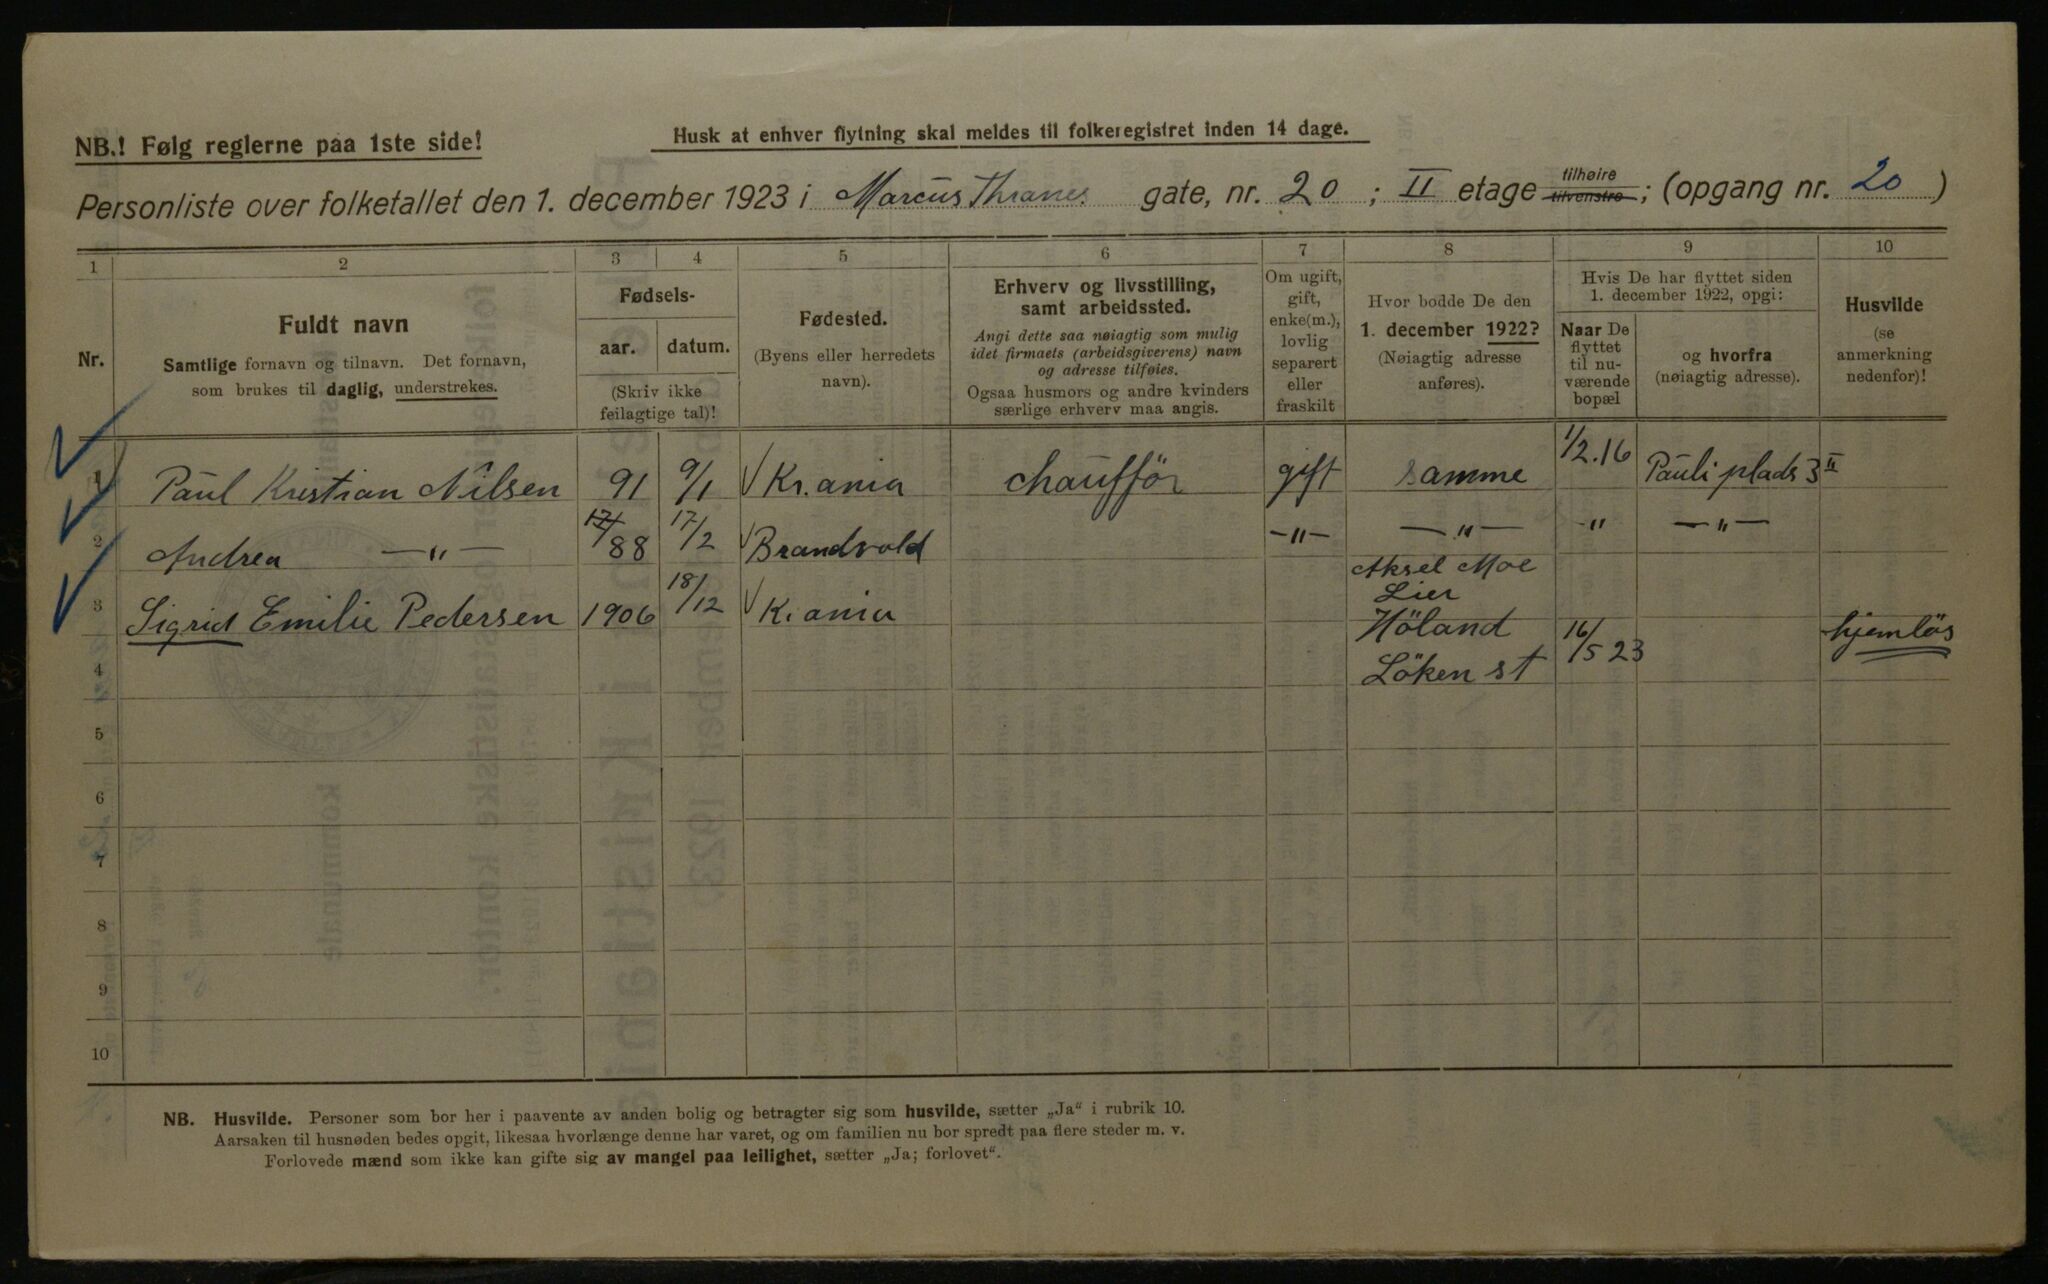 NB.! Følg reglerne paa 1ste side!
Husk at enhver flytning skal meldes til folkeregistret inden 14 dage.
Personliste over folketallet den 1. december 1923 i Marcus Thranes gate, nr. 20 ; II etage tilhøire tilvenstre ; (opgang nr. 20 )
1 2 3 4 5 6 7 8 9 10
Nr.
Fuldt navn
Samtlige fornavn og tilnavn. Det fornavn,
som brukes til daglig, understrekes.
Fødsels-
aar. datum.
(Skriv ikke
feilagtige tal)!
Fødested.
(Byens eller herredets
navn).
Erhverv og livsstilling,
samt arbeidssted.
Angi dette saa nøiagtig som mulig
idet firmaets (arbeidsgiverens) navn
og adresse tilføies.
Ogsaa husmors og andre kvinders
særlige erhverv maa angis.
Om ugift,
gift,
enke(m.),
lovlig
separert
eller
fraskilt
Hvor bodde De den
1. december 1922?
(Nøiagtig adresse
anføres).
Hvis De har flyttet siden
1. december 1922, opgi:
Naar De
flyttet
til nu-
værende
bopæl
og hvorfra
(nøiagtig adresse).
Husvilde
(se
anmerkning
nedenfor)!
1 Paul Kristian Nilsen 91 9/1 Kr.ania chauffør gift samme 1/2.16 Pauli plads 3 II
2 Andrea —"— 17/ 88 17/2 Brandvold —"— —"— " —"—
3 Sigrid Emilie Pedersen 1906 18/12 Kr.ania Aksel Moe
Lier
Höland 16/5 23 hjemløs
4 Löken st
5
6
7
8
9
10
NB. Husvilde. Personer som bor her i paavente av anden bolig og betragter sig som husvilde, sætter „Ja“ i rubrik 10.
Aarsaken til husnøden bedes opgit, likesaa hvorlænge denne har varet, og om familien nu bor spredt paa flere steder m. v.
Forlovede mænd som ikke kan gifte sig av mangel paa leilighet, sætter „Ja; forlovet“.